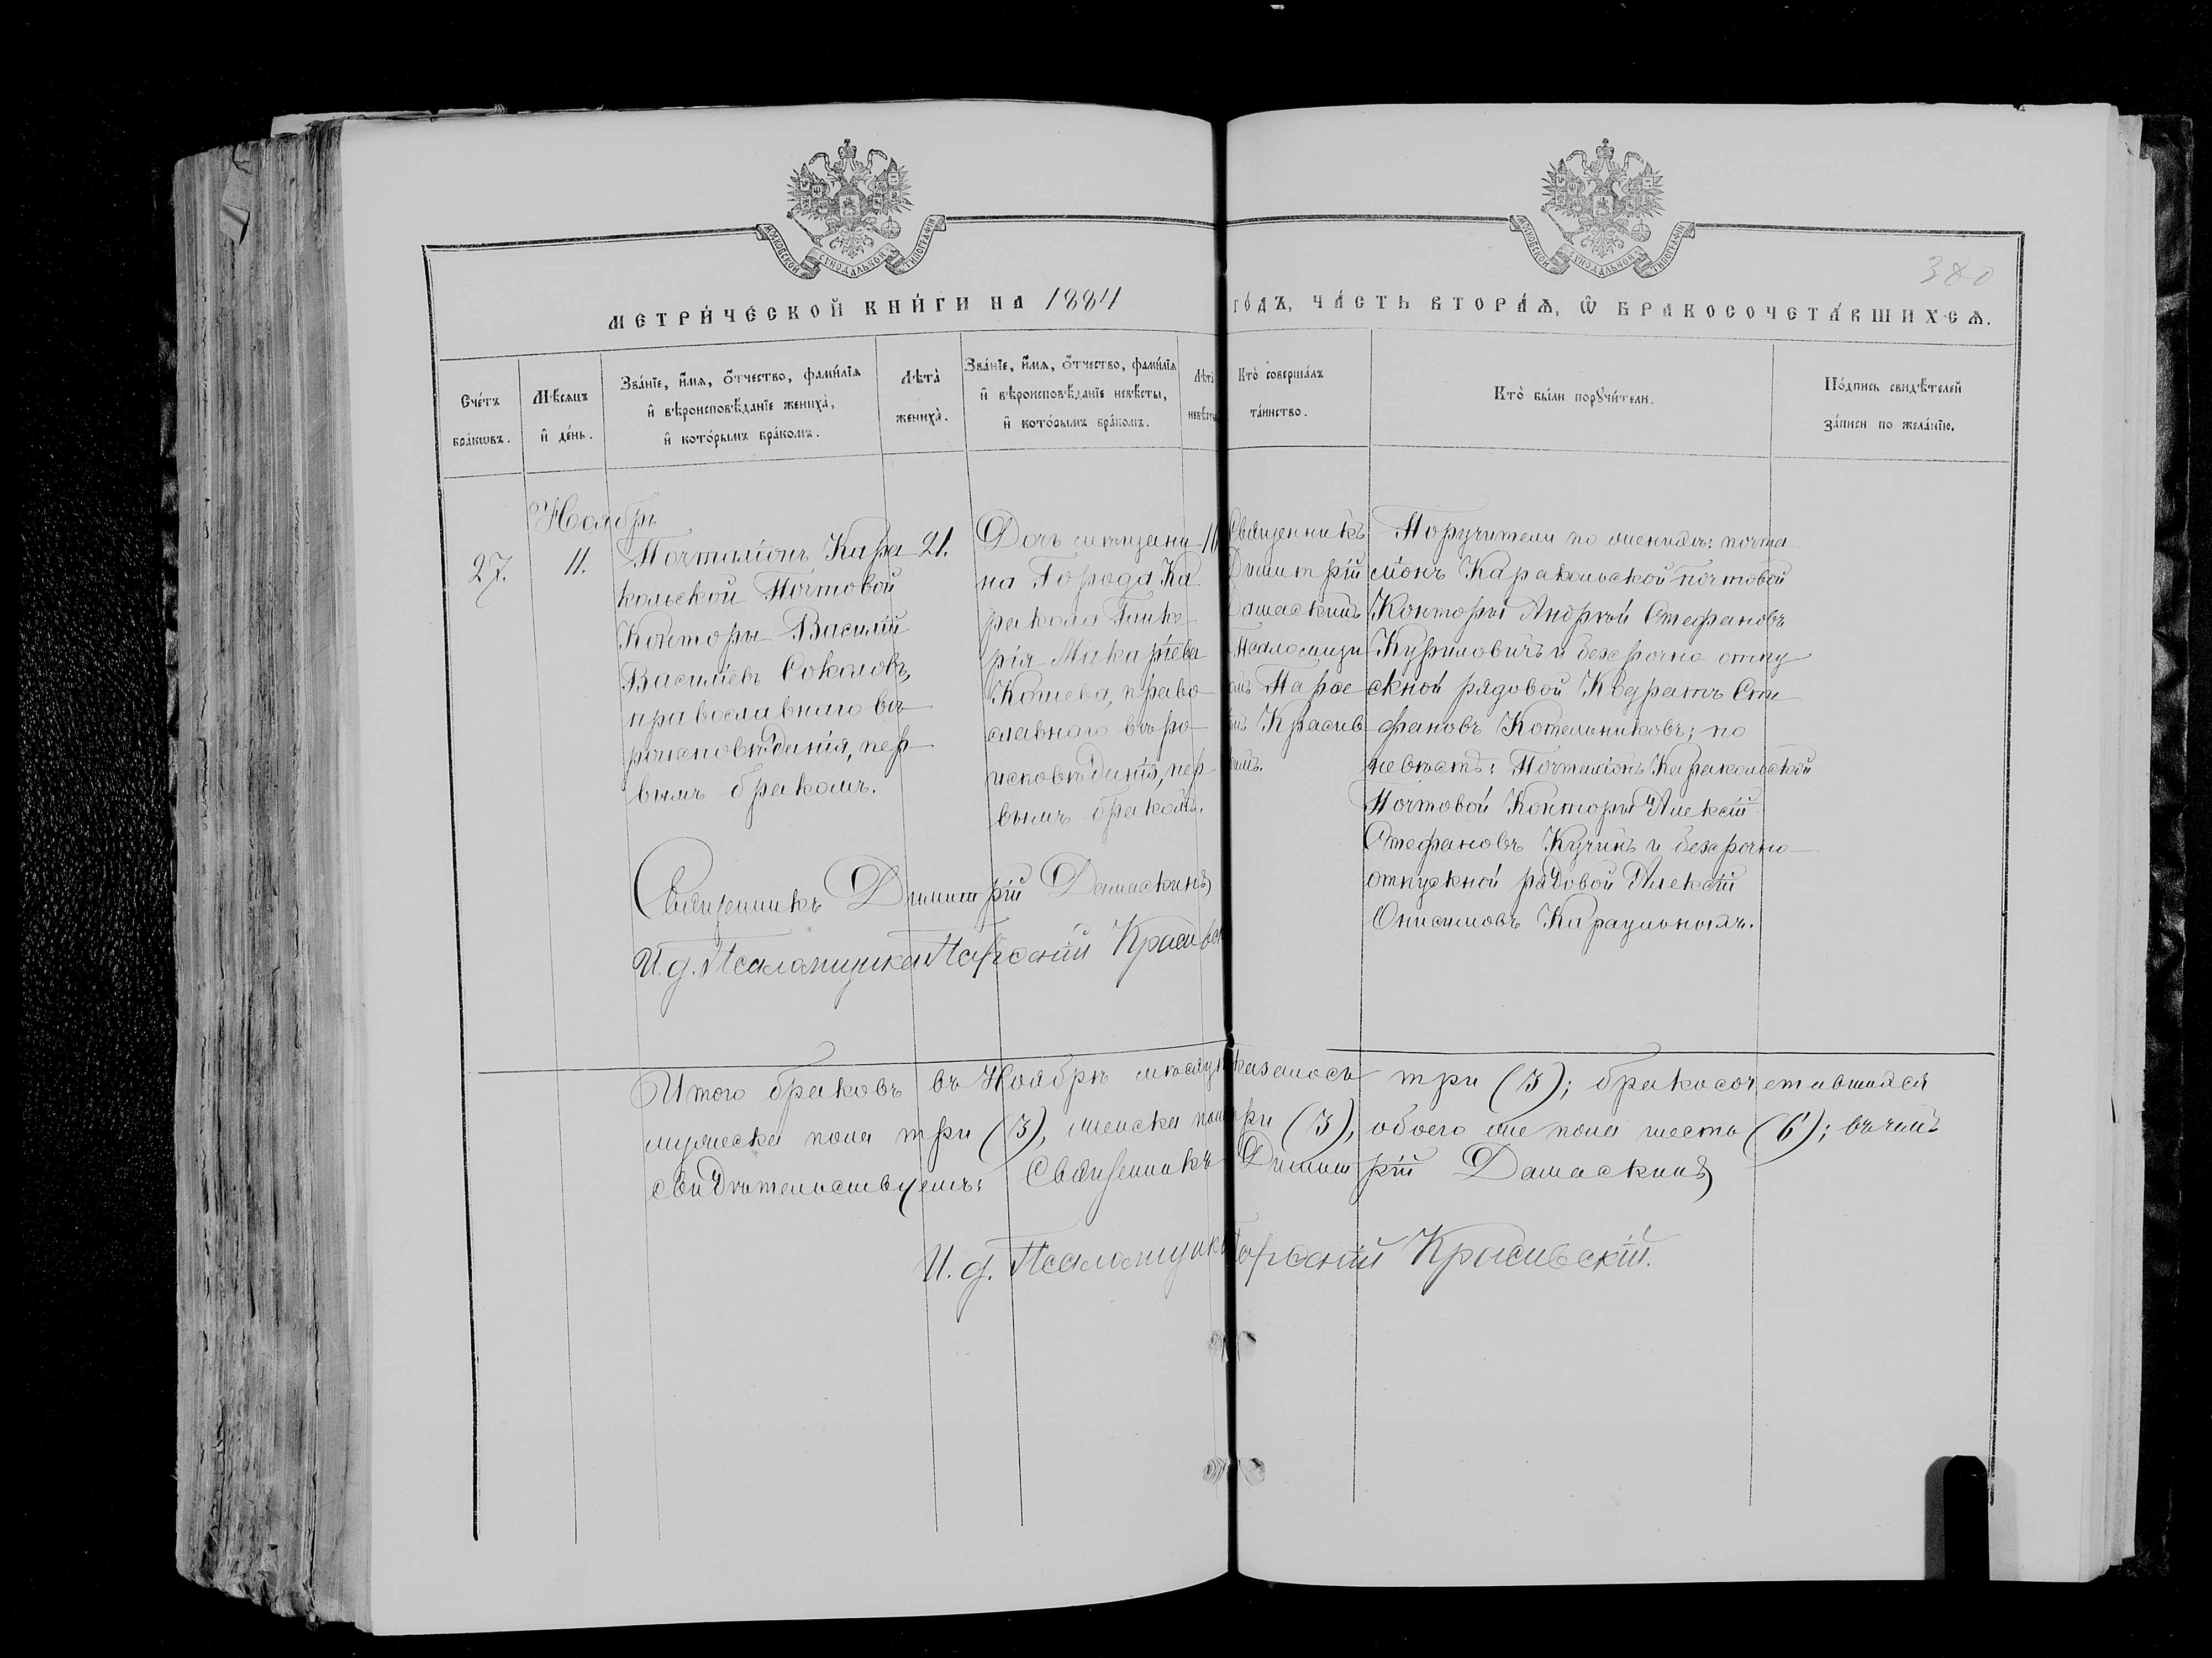 МОСКОВСКОЙ СУНОДАЛЬНОЙ ТИПОГРАФІИ
МОСКОВСКОЙ СУНОДАЛЬНОЙ ТИПОГРАФІИ
380
МЕТРИ́ЧЕСКОЙ КНИ́ГИ НА 1884
ГО́ДЪ, ЧА́СТЬ ВТОРА́Ѧ, Ѿ БРАКОСОЧЕТА́ВШИХСѦ.
Сче́тъ
бра́кѡвъ.
Мѣ́сѧцъ
и҆ де́нь.
Зва́нїе, и҆́мѧ, ѻ҆́тчество, фами́лїѧ
и҆ вѣроисповѣ́данїе жениха̀,
и҆ кото́рымъ бра́комъ.
Лѣта̀
жениха̀.
Зва́нїе, и҆́мѧ, ѻ҆́тчество, фами́лїѧ
и҆ вѣроисповѣ́данїе невѣ́сты,
и҆ кото́рымъ бра́комъ.
Лѣта̀
невѣ́сты
Кто̀ соверша́лъ
та́инство.
Кто̀ бы́ли порꙋчи́тели.
По́дпись свидѣ́телей
за́писи по жела́нїю.
Ноябрь
27.
11.
Почталіонъ Кара
кольской Почтовой
Конторы Василій
Василіевъ Соколовъ,
православнаго вѣ-
роисповѣданія, пер-
вымъ бракомъ.
21.
Дочь мѣщани-
на Города Ка
ракола Глике-
рія Макаріева
Кошева, право-
славнаго вѣро-
исповѣданія, пер-
вымъ бракомъ.
Священникъ
Димитрій
Дамаскинъ
Псаломщи
Парѳе
Красив
Поручители по женихѣ: почта
ліонъ Каракольской почтовой
Конторы Андрей Стефановъ
Куриловичъ и безсрочно отпу
скной рядовой Кодратъ Сте
фановъ Котельниковъ; по
невѣстѣ: Почталіонъ Каракольской
Почтовой Конторы Алексій
Стефановъ Кучинъ и безсрочно-
отпускной рядовой Алексій
Онисимовъ Караульныхъ.
Священникъ Димитрій Дамаскинъ
И. д. Псаломщика Парѳеній Красивск
Итого браковъ въ Ноябрѣ мѣсяцѣ казалось три (3); бракосочетавшихся
мужеска пола три (3), женска пола три (3), обоего же пола шесть (6); въ чемъ
свидѣтельствуемъ: Священникъ Димитрій Дамаскинъ
И. д. Псаломщика Парѳеній Красивскій.